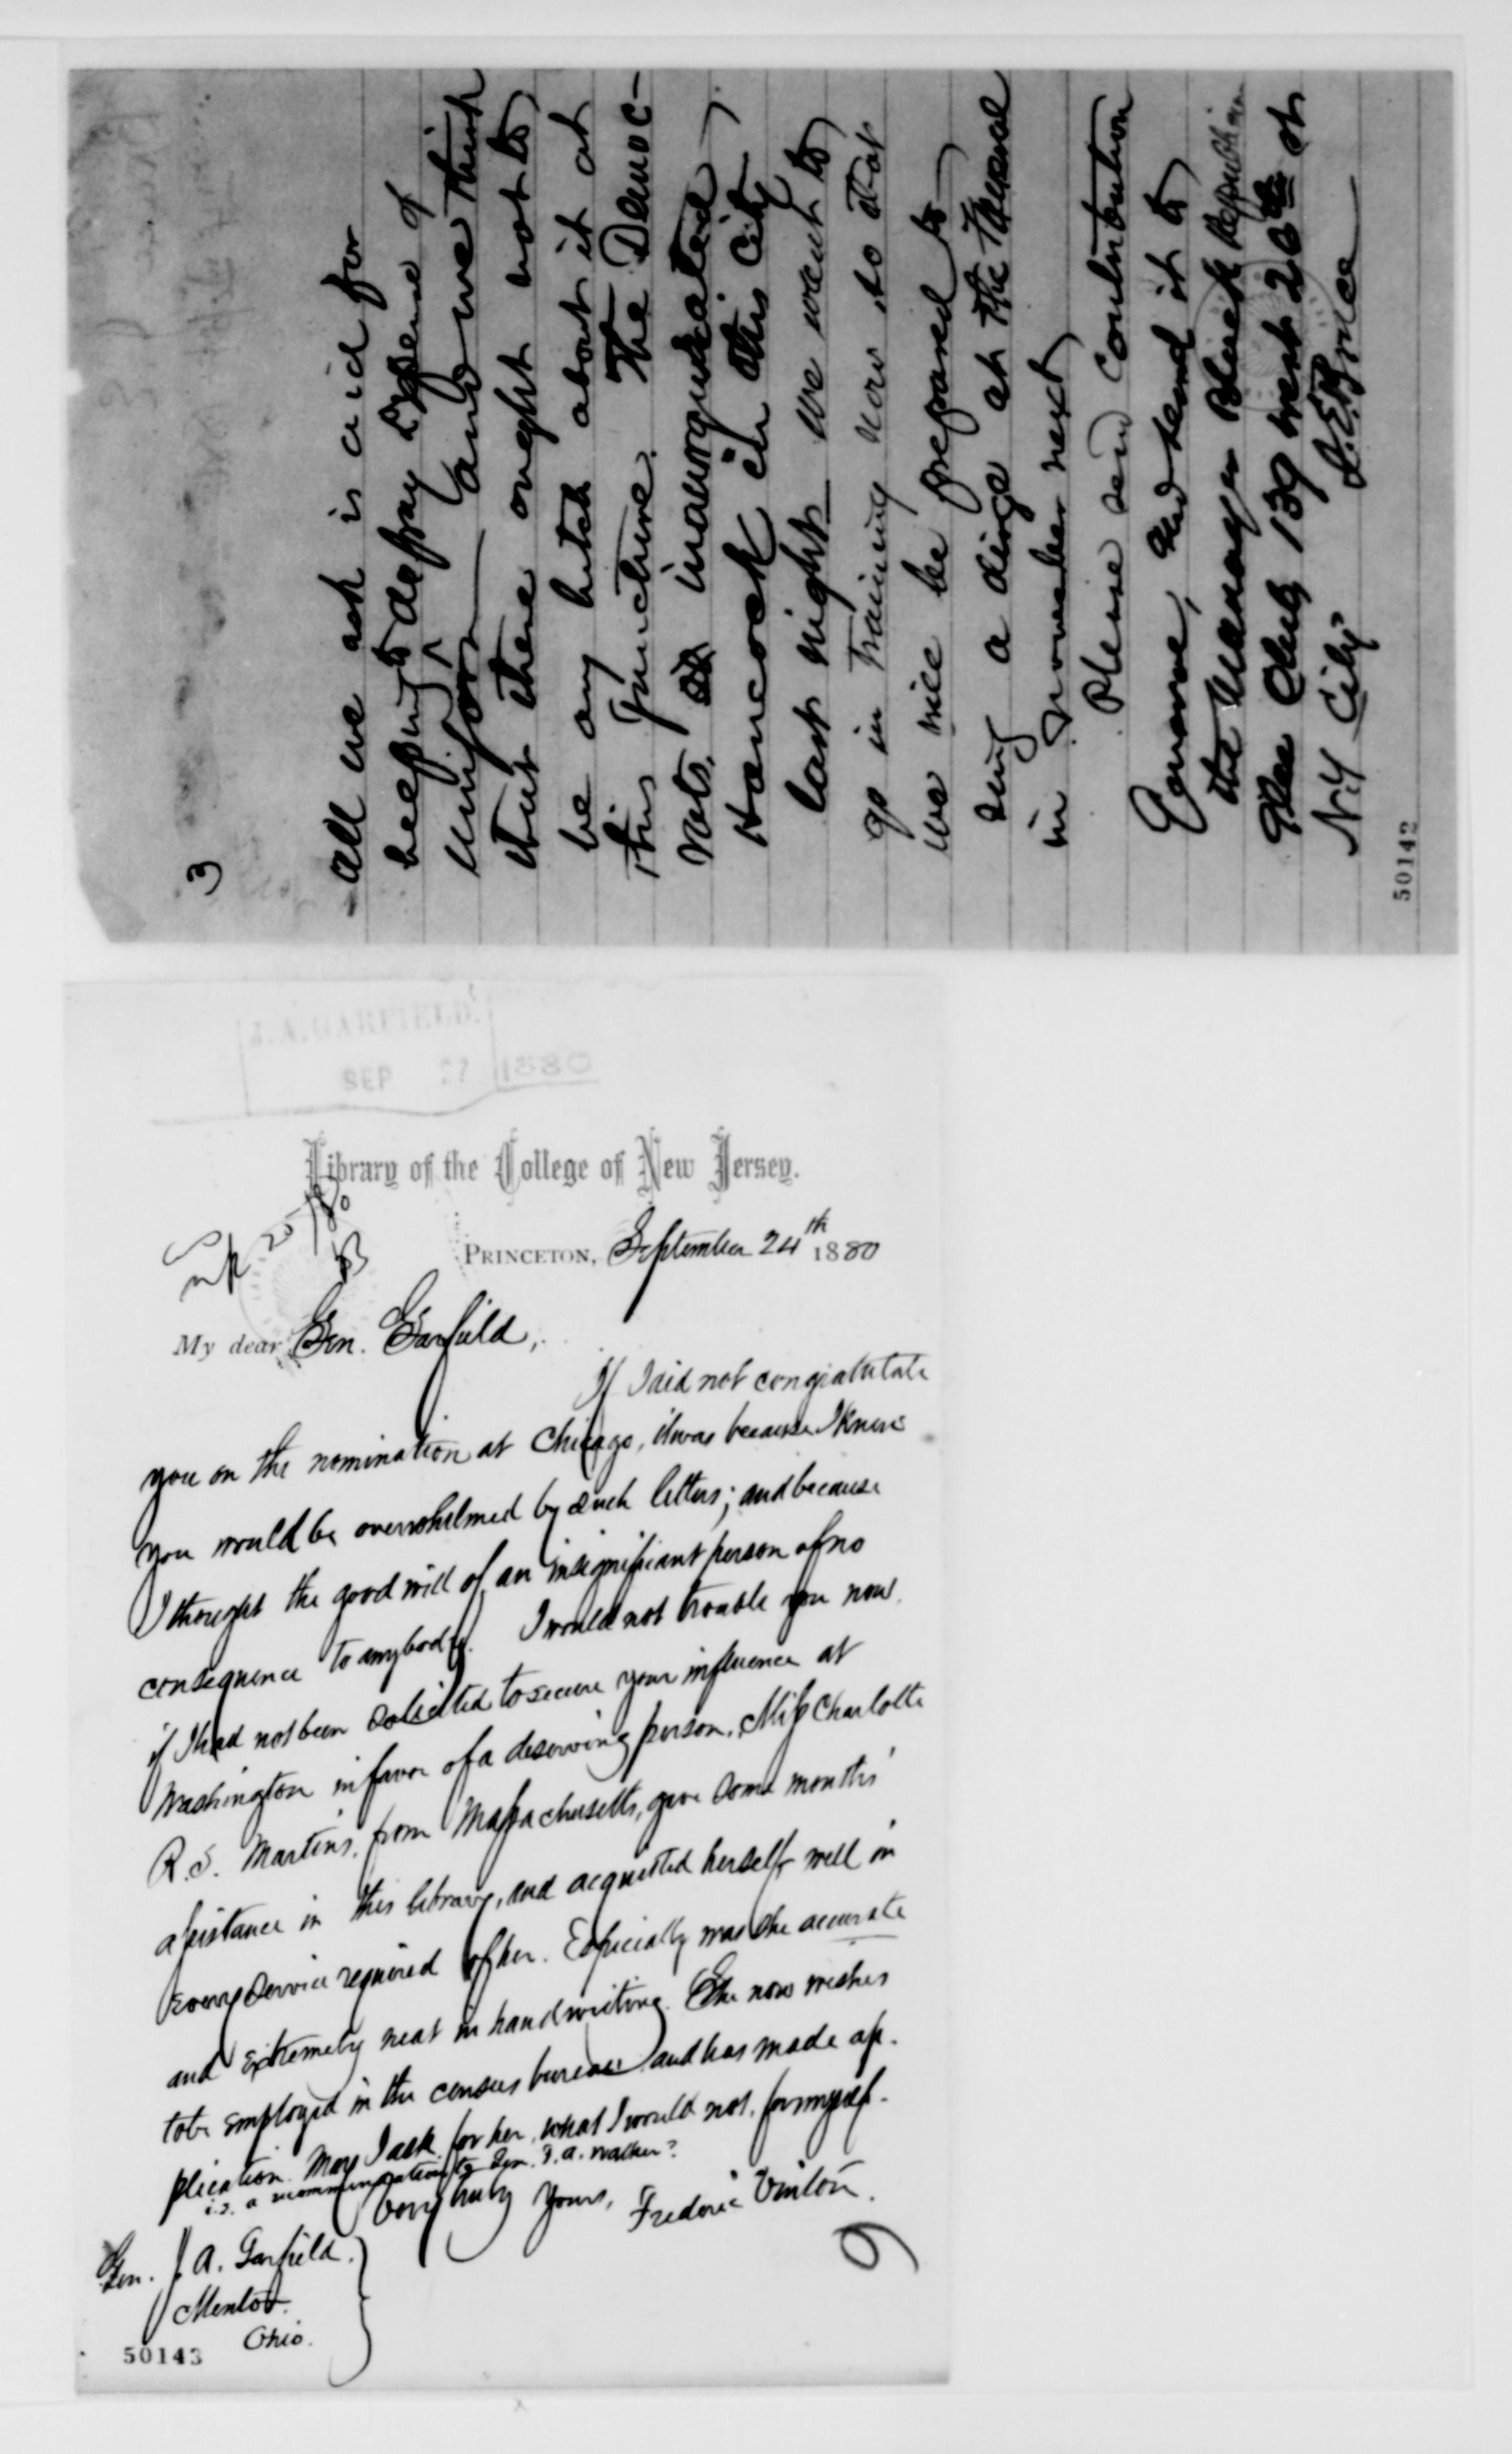 3
all we ask is aid for
helping to defray expense of
uniform — and we think
that there ought not to
be any hitch about it at
this juncture. The Democ-
rats inaugurated
Hancock in this city
last night — we want to
go in training now so that
we will be prepared to
sing a dirge at the funeral
in November next
Please send contribution
General, and send it to
the Manager Black Republican
Glee Club 139 West 26th St
N.Y City
50142
J.A. GARFIELD.
SEP 27 1880
Library of the College of New Jersey.
PRINCETON, September 24th 1880
My dear Gen. Garfield,
If I did not congratulate
you on the nomination at Chicago, it was because I knew
you would be overwhelmed by such letters; and because
I thought the good will of an insignificant person of no
consequence to anybody. I would not trouble you now,
if I had not been solicited to secure your influence at
Washington in favor of a deserving person. Miss Charlotte
R.S. Martins, from Massachusetts, gave some months'
assistance in this library, and acquitted herself well in
every service required of her. Especially was she accurate
and extremely neat in handwriting. She now wishes
to be employed in the census bureau and has made ap-
plication. May I ask for her, what I would not for myself.
i.e. a recommendation to Gen. F. A. Walker?
Very truly yours, Frederic Vinton.
Gen. J. A. Garfield.
Mentor.
Ohio.
9
50143